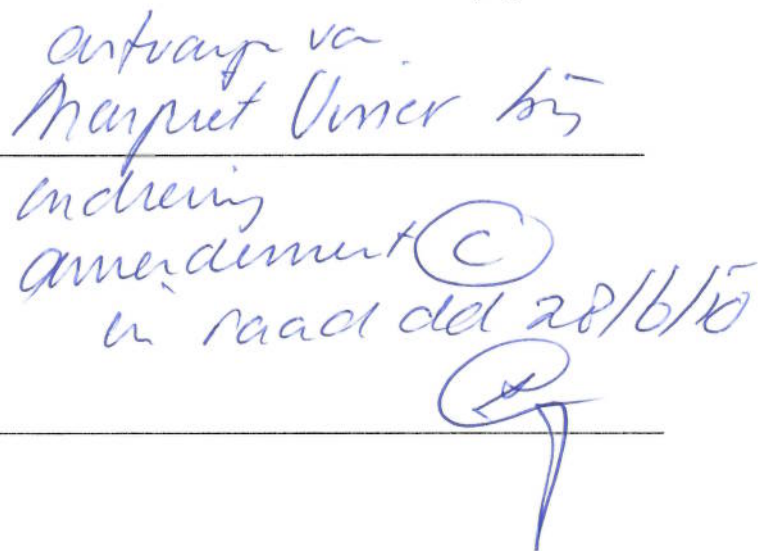 ontvangen van
Margriet Visser bij
indiening
amendement C
in raad dd 28/6/10